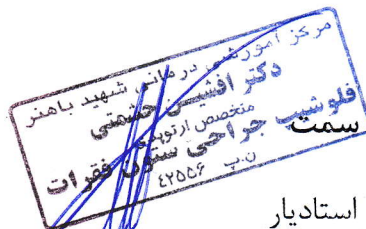 مرکز آموزشی درمانی شهید باهنر
دکتر افشین حشمتی
متخصص ارتوپدی
فلوشیپ جراحی ستون فقرات
ن.پ ٤٢٥٥۶
سمت
استادیار